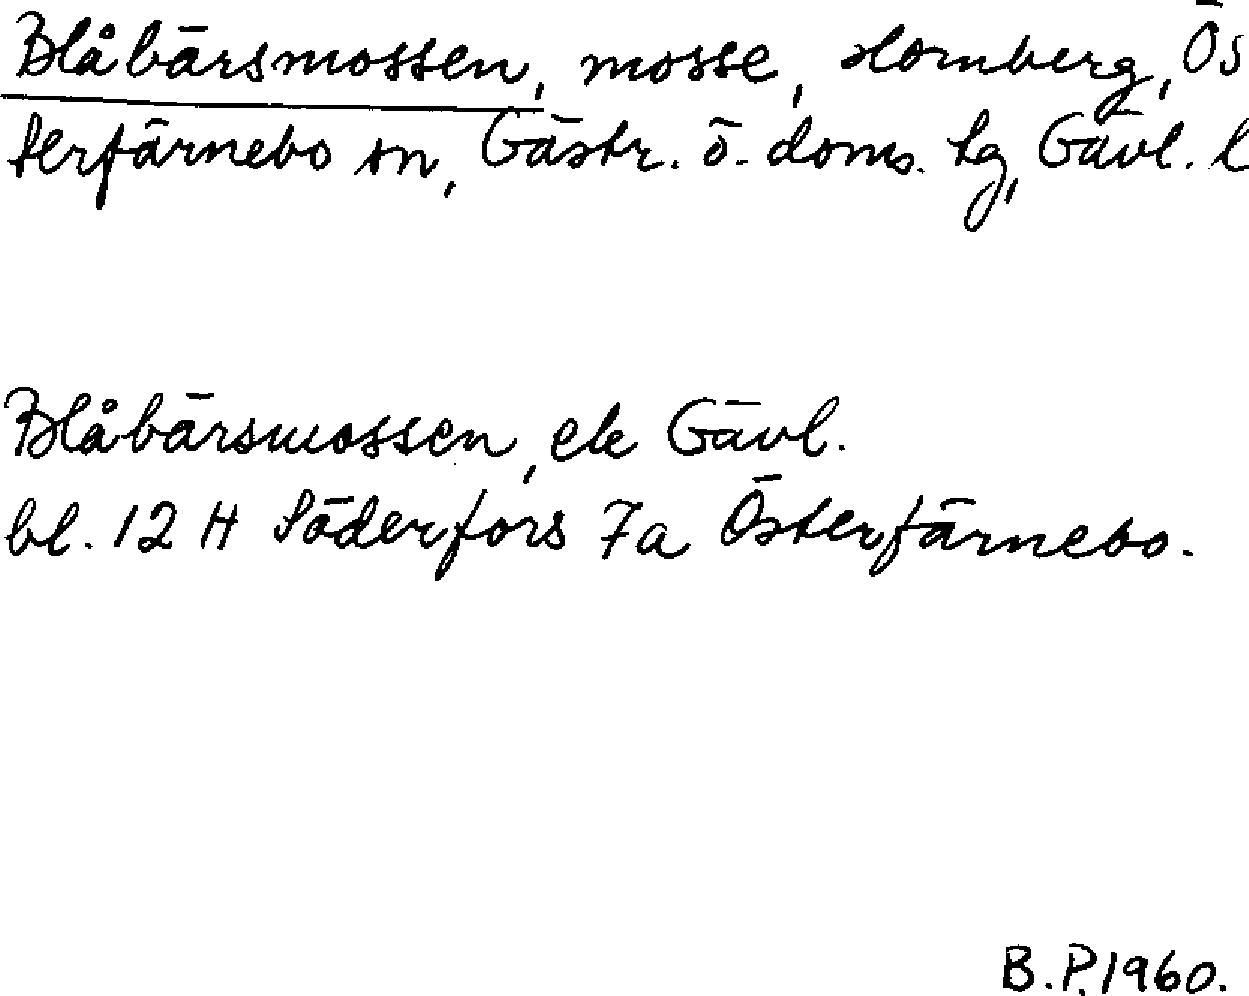 Blåbärsmossen, mosse, Hornberg, Ös
terfärnebo sn, Gästr. ö. doms. tg, Gävl. l
Blåbärsmossen, ek Gävl.
bl. 12 H Söderfors 7a Österfärnebo.
B.P. 1960.